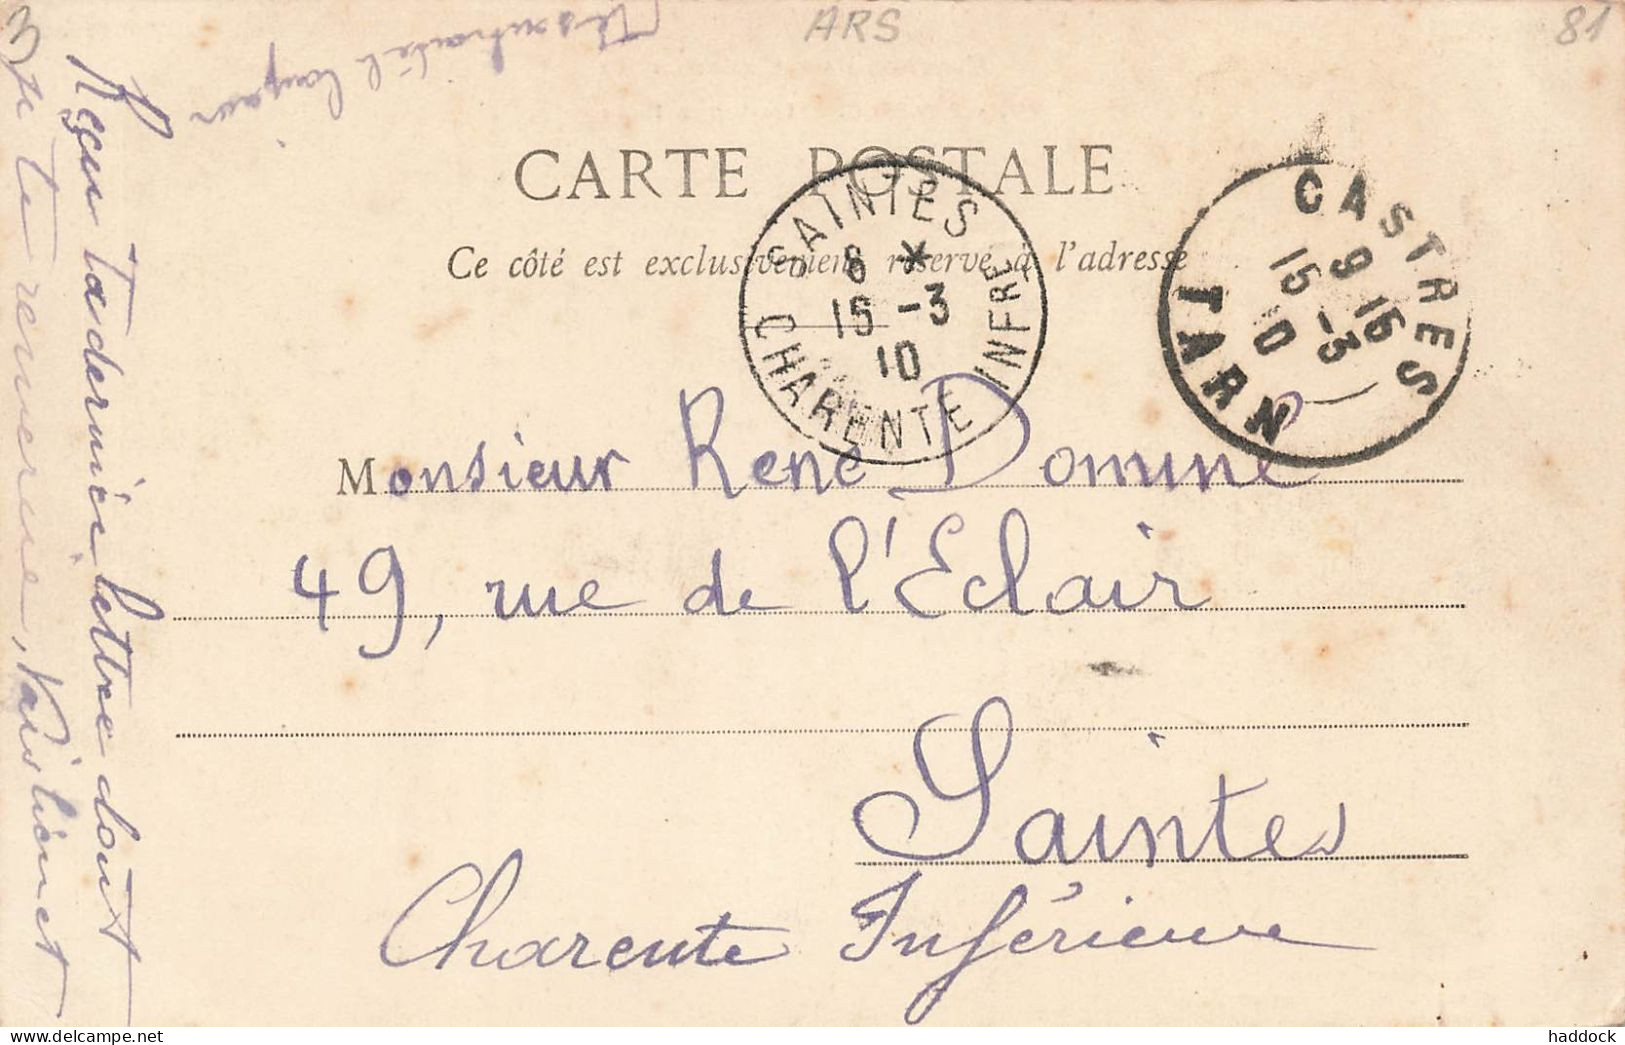 ARS
81
CARTE POSTALE
Ce côté est exclusivement réservé à l'adresse
SAINTES
6 *
15 -3
10
CHARENTE INFRE
CASTRES
9 15
15 -3
10
TARN
Monsieur René Domine
49, rue de l'Eclair
Saintes
Charente Inférieure
Reçu ta dernière lettre dont
je te remercie,
haddock